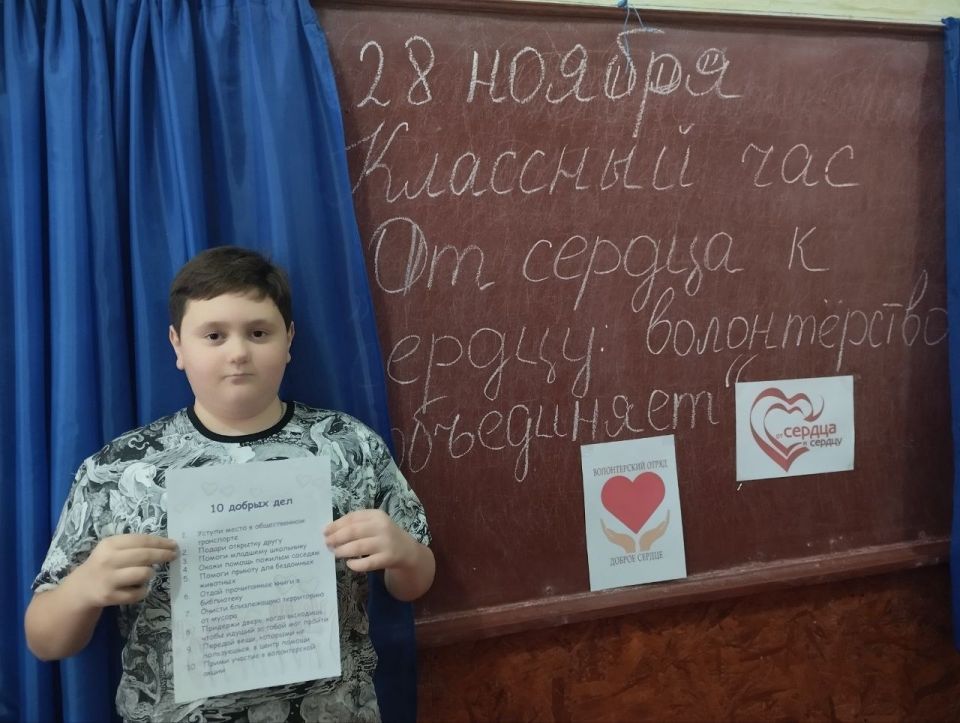 28 ноября
Классный час
От сердца к
сердцу: волонтёрство
объединяет"
от сердца
к сердцу
ВОЛОНТЕРСКИЙ ОТРЯД
ДОБРОЕ СЕРДЦЕ
10 добрых дел
1. Уступи место в общественном
транспорте
2. Подари открытку другу
3. Помоги младшему школьнику
4. Окажи помощь пожилым соседям
5. Помоги приюту для бездомных
животных
6. Отдай прочитанные книги в
библиотеку
7. Очисти близлежащую территорию
от мусора
8. Придержи дверь, когда выходишь,
чтобы идущий за тобой мог пройти
9. Передай вещи, которыми не
пользуешься, в центр помощи
10. Прими участие в волонтерской
акции